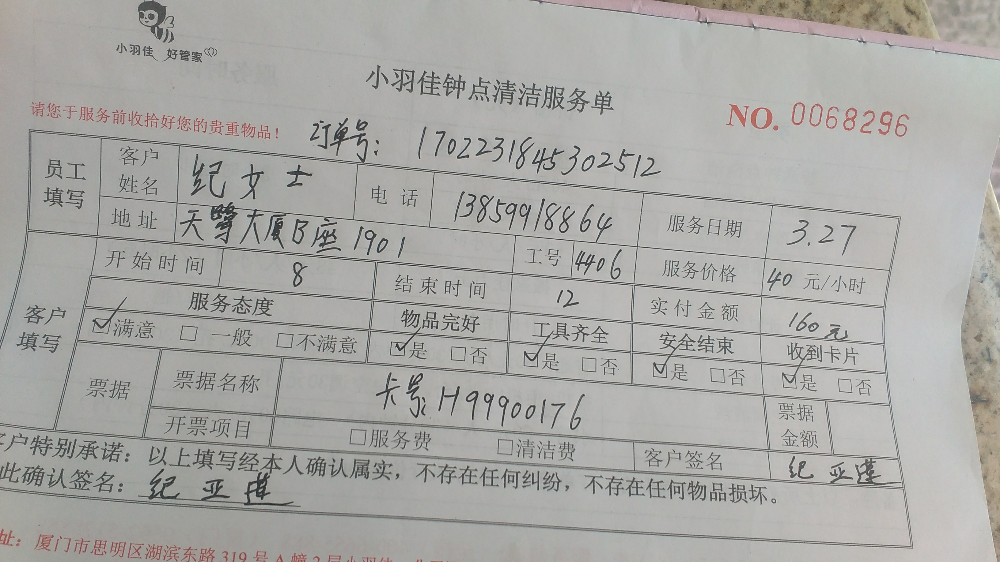 小羽佳 好管家
小羽佳钟点清洁服务单
NO. 0068296
请您于服务前收拾好您的贵重物品！
订单号：1702231845302512
员工填写 客户姓名 纪女士 电话 13859918864 服务日期 3.27
地址 天鹭大厦B座1901 工号 4406 服务价格 40 元/小时
客户填写 开始时间 8 结束时间 12 实付金额 160元
服务态度 物品完好 工具齐全 安全结束 收到卡片
☑满意 □一般 □不满意 ☑是 □否 ☑是 □否 ☑是 □否 ☑是 □否
票据 票据名称 卡号H99900176 票据金额
开票项目 □服务费 □清洁费 客户签名 纪亚莲
客户特别承诺：以上填写经本人确认属实，不存在任何纠纷，不存在任何物品损坏。
此确认签名：纪亚莲
址：厦门市思明区湖滨东路319号A幢2层小羽佳